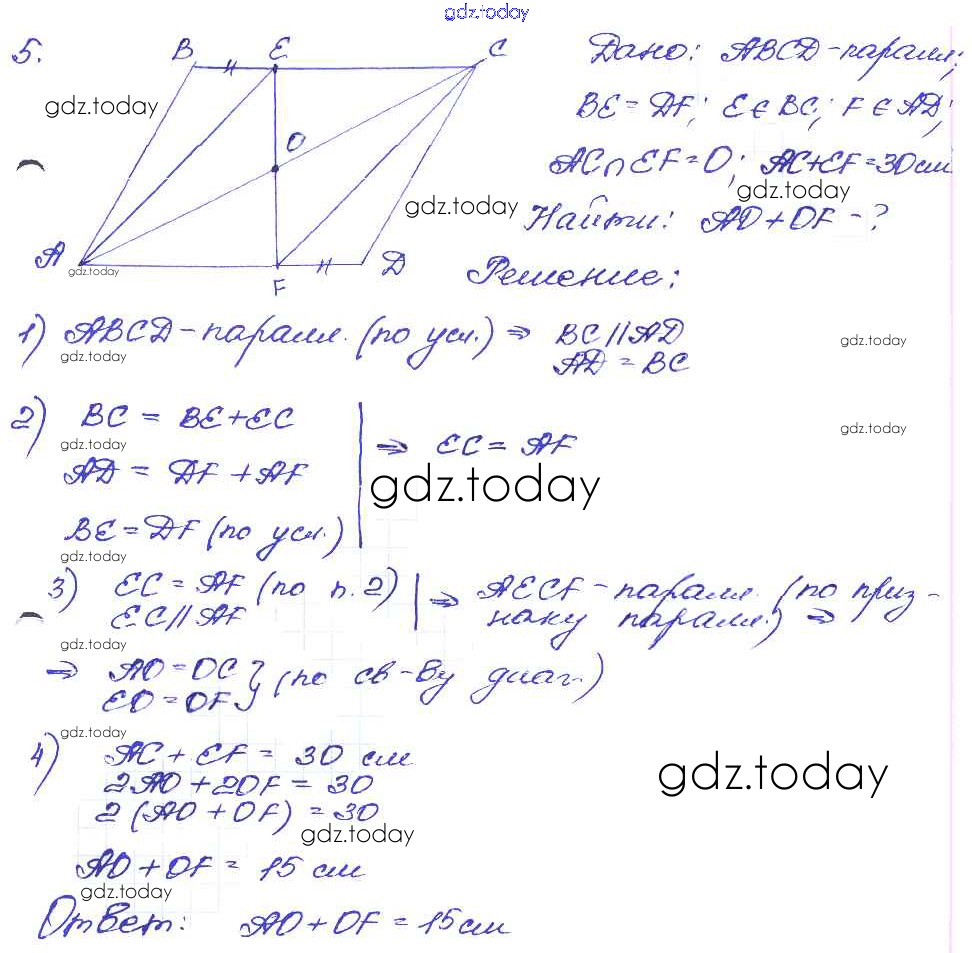 gdz.today
5.
B E C
O
A F D
Дано: ABCD-паралл;
BE = DF; E ∈ BC; F ∈ AD;
AC ∩ EF = O; AC+EF=30 см
Найти: AO + OF - ?
Решение:
gdz.today
gdz.today
gdz.today
gdz.today
1) ABCD-паралл. (по усл.) ⇒ BC // AD
AD = BC
gdz.today
gdz.today
2) BC = BE + EC
AD = DF + AF ⇒ EC = AF
BE = DF (по усл.)
gdz.today
gdz.today
gdz.today
gdz.today
3) EC = AF (по п. 2) ⇒ AECF-паралл. (по приз-
EC // AF наку паралл.) ⇒
gdz.today
⇒ AO = OC } (по св-ву диаг.)
EO = OF
gdz.today
4) AC + EF = 30 см
2AO + 2OF = 30
2 (AO + OF) = 30
gdz.today
gdz.today
AO + OF = 15 см
gdz.today
Ответ: AO + OF = 15 см